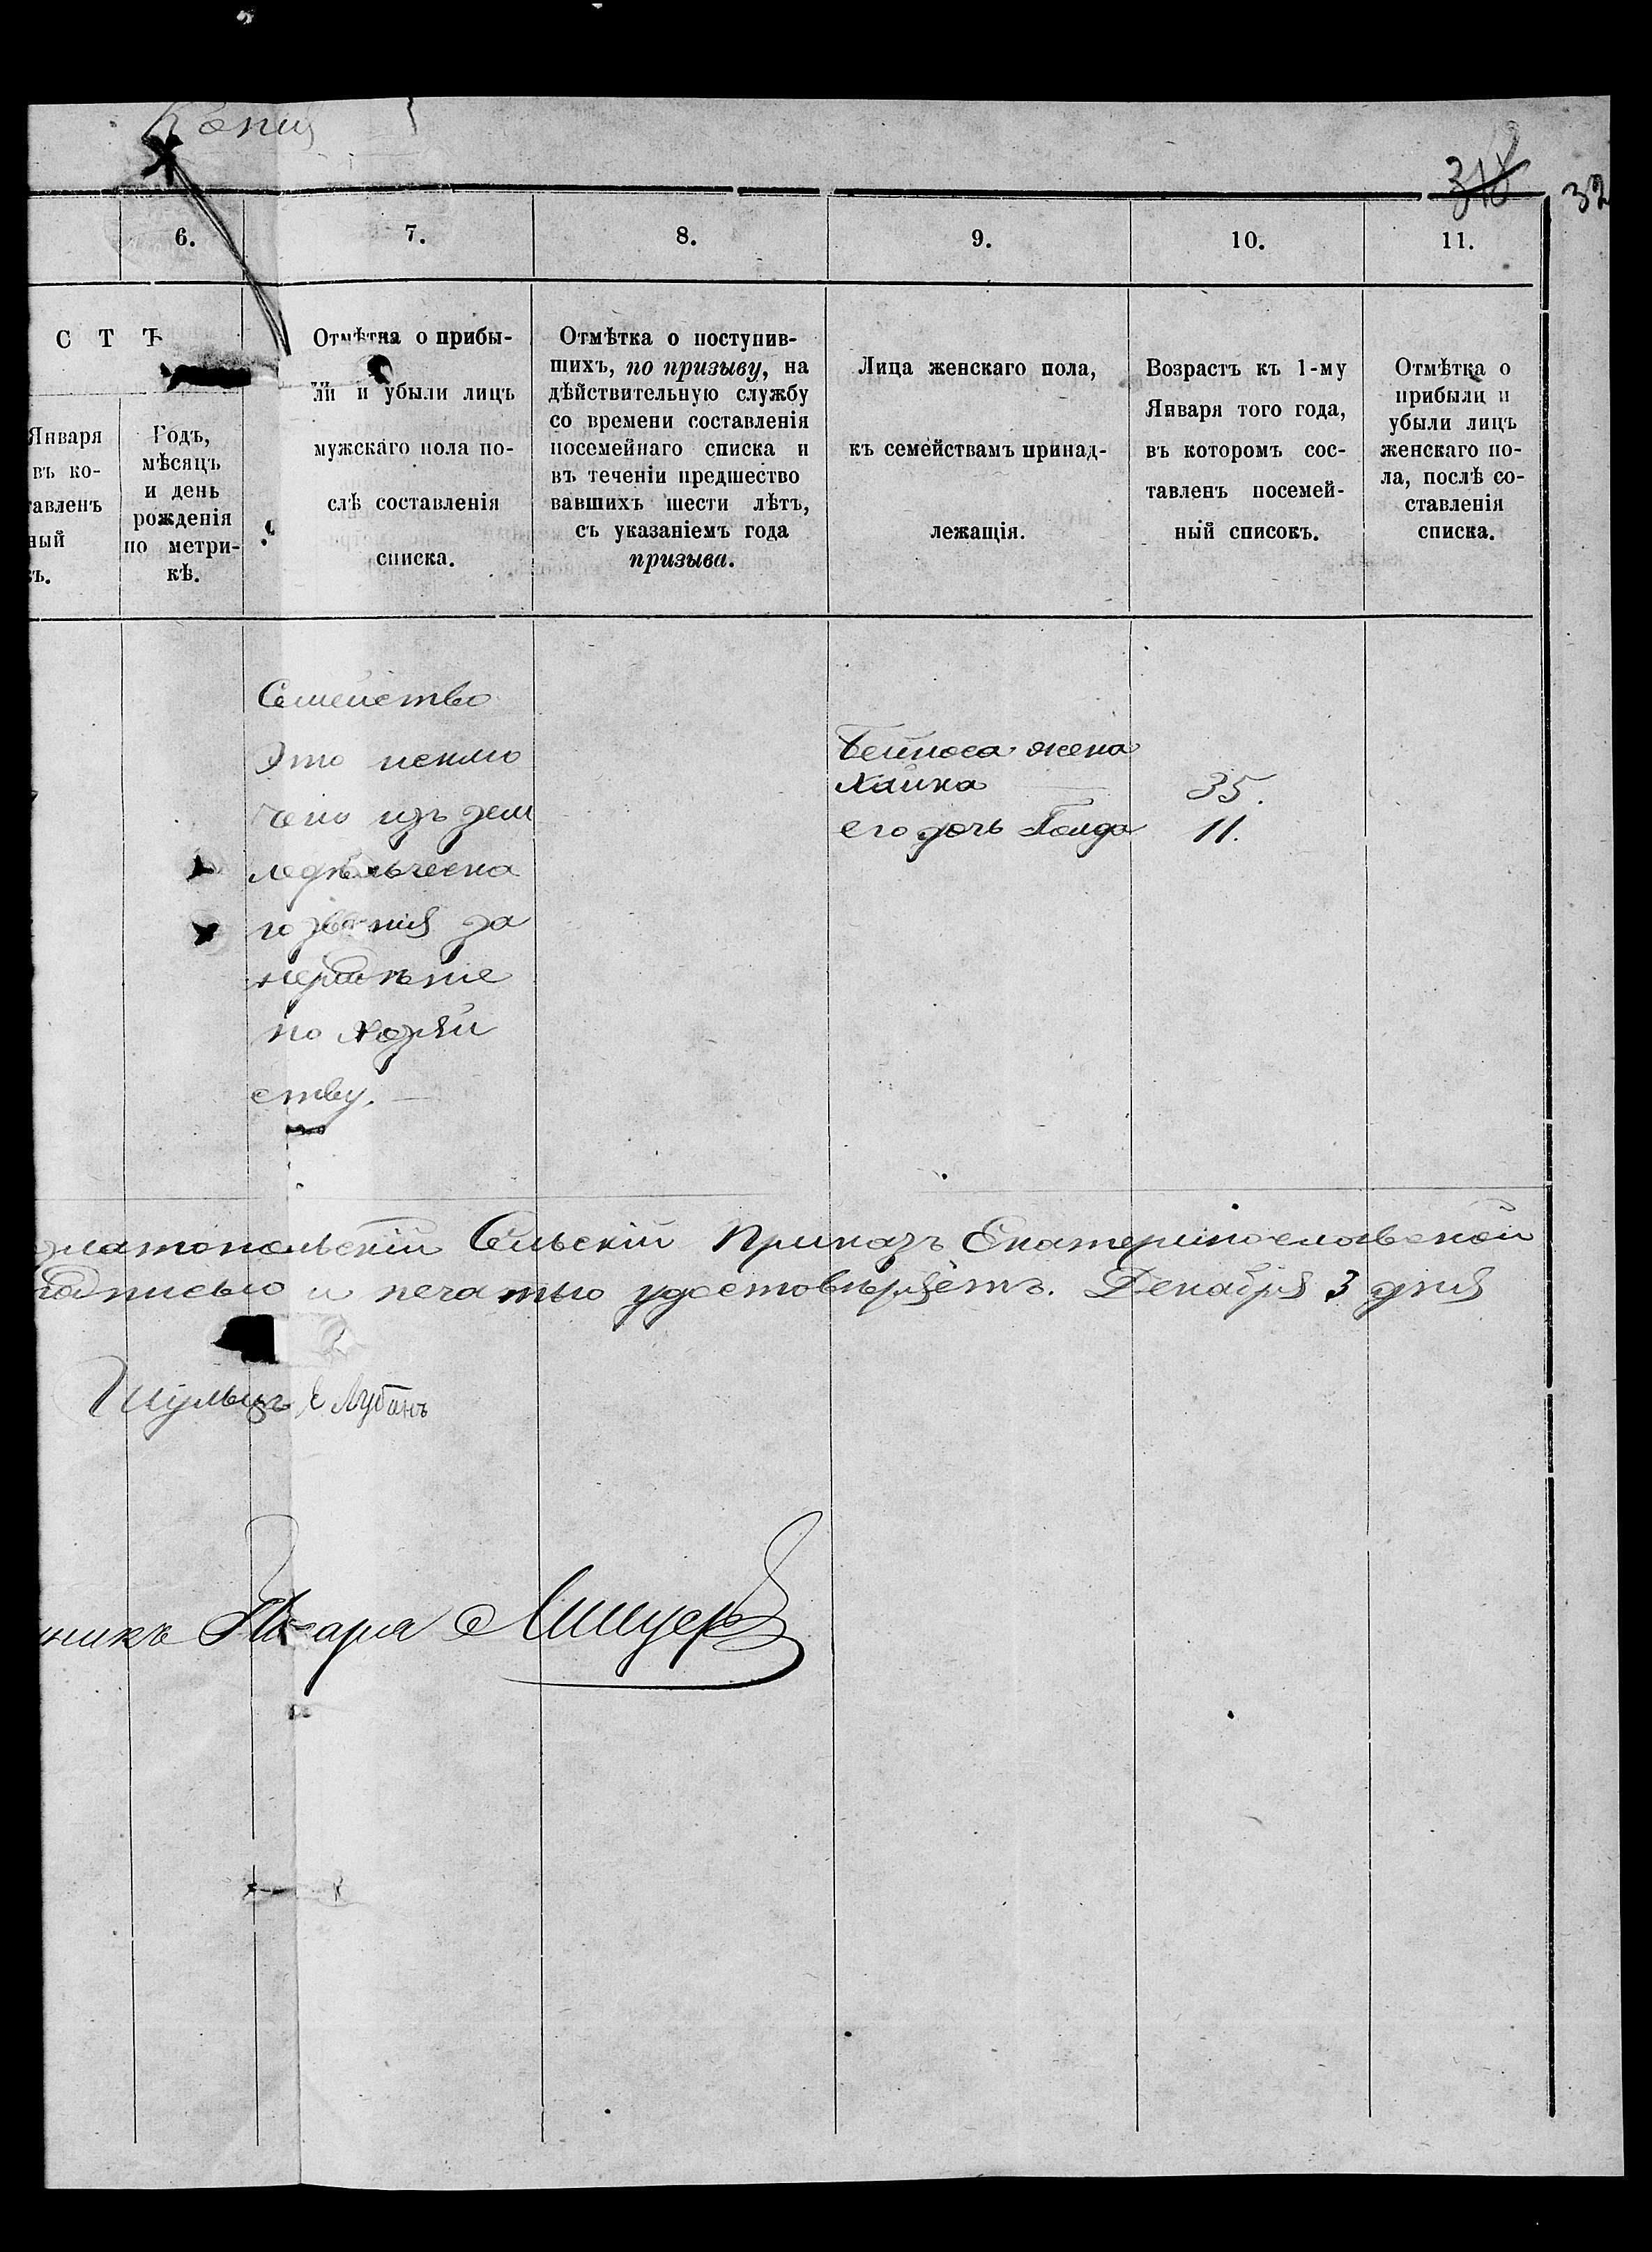 Копія
318
32
6.
7.
8.
9.
10.
11.
С Т Ъ
Января
въ ко-
тавленъ
ный
ъ.
Годъ,
мѣсяцъ
и день
рожденія
по метри-
кѣ.
Отмѣтка о прибы-
ли и убыли лицъ
мужскаго пола по-
слѣ составленія
списка.
Отмѣтка о поступив-
шихъ, по призыву, на
дѣйствительную службу
со времени составленія
посемейнаго списка и
въ теченіи предшество
вавшихъ шести лѣтъ,
съ указаніемъ года
призыва.
Лица женскаго пола,
къ семействамъ принад-
лежащія.
Возрастъ къ 1-му
Января того года,
въ которомъ сос-
тавленъ посемей-
ный списокъ.
Отмѣтка о
прибыли и
убыли лицъ
женскаго по-
ла, послѣ со-
ставленія
списка.
Семейство
это исклю
чено изъ зем
ледѣльческа
го званія за
нерадѣніе
по хозяй
ству.
Бейноса жена
Хайка 35.
его дочь Голда 11.
златопольскій Сельскій Приказъ Екатеринославской
подписью и печатью удостовѣряетъ. Декабря 3 дня
Шульцъ Е Лубанъ
никъ Писаря